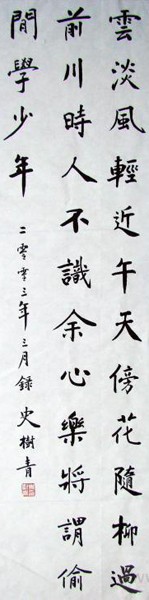 雲淡風輕近午天傍花隨柳過
前川時人不識余心樂將謂偷
閒學少年
二零零三年三月錄 史樹青